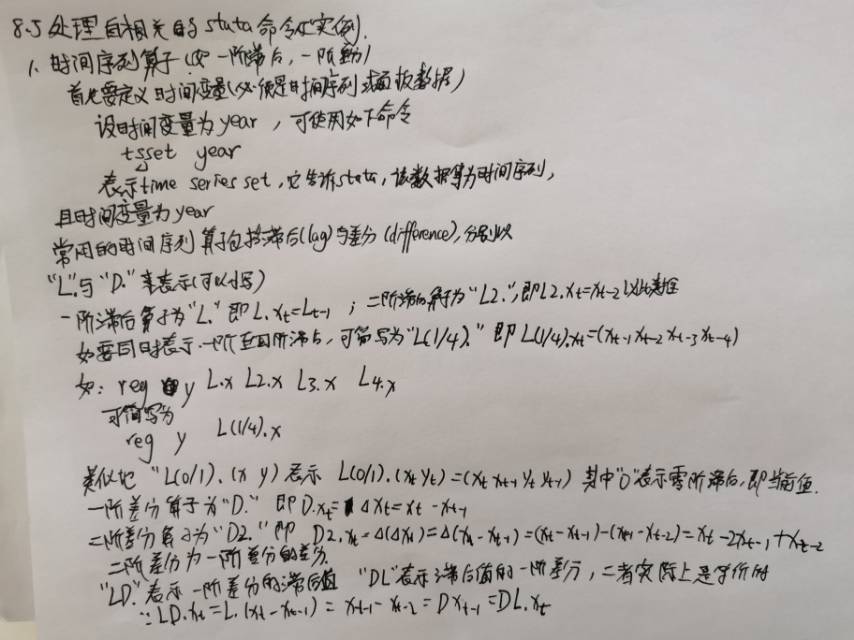 8.5 处理自相关的stata命令及实例.
1、时间序列算子(如 一阶滞后，一阶差分)
首先要定义时间变量(必须是时间序列或面板数据)
设时间变量为year，可使用如下命令
tsset year
表示time series set，它告诉stata，该数据集为时间序列，
且时间变量为year
常用的时间序列算子包括滞后(lag)与差分(difference)，分别以
"L."与"D."来表示(可以小写)
一阶滞后算子为"L."即L.xt=Lt-1；二阶滞后算子为"L2."，即L2.xt=xt-2以此类推
如要同时表示一阶至四阶滞后，可简写为"L(1/4)."即L(1/4).xt=(xt-1 xt-2 xt-3 xt-4)
如：reg y L.x L2.x L3.x L4.x
可简写为
reg y L(1/4).x
类似地"L(0/1).(x y)表示 L(0/1).(xt yt)=(xt xt-1 yt yt-1) 其中"0"表示零阶滞后，即当前值.
一阶差分算子为"D."即D.xt=Δxt=xt-xt-1
二阶差分算子为"D2."即 D2.xt=Δ(Δxt)=Δ(xt-xt-1)=(xt-xt-1)-(xt-1-xt-2)=xt-2xt-1+xt-2
二阶差分为一阶差分的差分.
"LD."表示一阶差分的滞后值 "DL"表示滞后值的一阶差分，二者实际上是等价的
∵LD.xt=L.(xt-xt-1)=xt-1-xt-2=Dxt-1=DL.xt